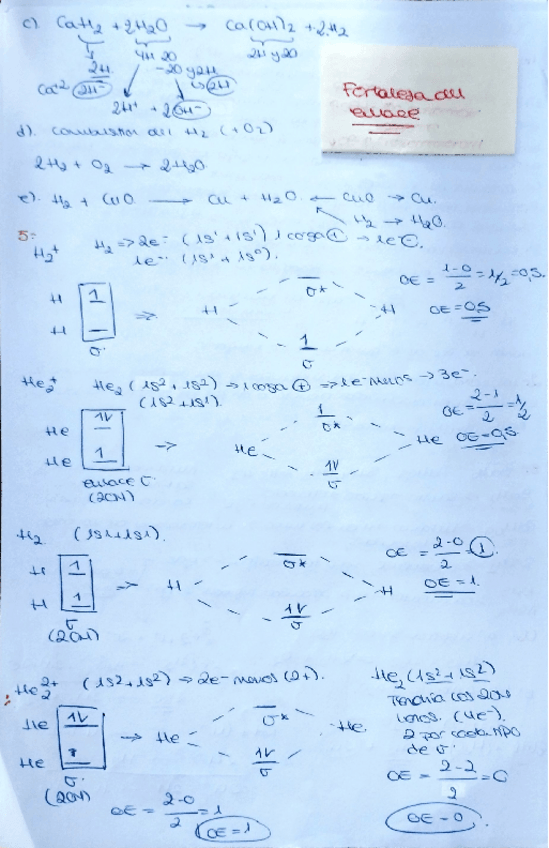 c). CaH2 + 2H2O → Ca(OH)2 + 2H2
2H 4H 2O 2H y 2O
-2O y 2H
Ca+2 2H- 2H
2H+ + 2OH-
Fortaleza del
enlace
d). combustión del H2 (+O2)
2H2 + O2 → 2H2O
e). H2 + CuO → Cu + H2O ← CuO → Cu.
H2 → H2O.
5:
H2+ H2 ⇒ 2e- (1s1 + 1s1) 1 carga ⊕ → 1e-.
1e- (1s1 + 1s0).
H 1
H
σ
⇒ H σ* H
1
σ
OE = 1-0/2 = 1/2 = 0,5.
OE = 0,5
He2+ He2 (1s2 + 1s2) → 1 carga ⊕ ⇒ 1e- menos → 3e-.
(1s2 + 1s1).
He 1V
He 1
enlace σ
(2OM)
→ He 1 σ* He
1V
σ
OE = 2-1/2 = 1/2
OE = 0,5.
H2 (1s1 + 1s1).
H 1
H 1
σ
(2OM)
→ H σ* H
1V
σ
OE = 2-0/2 = 1
OE = 1.
He2 2+ (1s2 + 1s2) ⇒ 2e- menos (2+).
He 1V
He
σ
(2OM)
→ He σ* He
1V
σ
OE = 2-0/2 = 1
OE = 1
He2 (1s2 + 1s2)
Tendría los 2OM
(4e-).
2 por cada tipo
de σ.
OE = 2-2/2 = 0
OE = 0